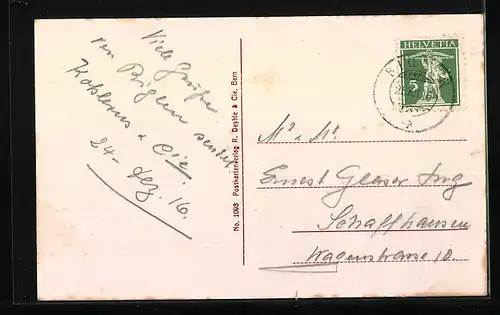 Viele Grüsse
von Brigen sendet
Kohlerus & Cie.
24. Dez. 16.
No. 1098 Postkartenverlag R. Deyhle & Cie, Bern
HELVETIA
5
Mr & Me
Ernest Glaser Ing
Schaffhausen
Wagenstrasse 10.